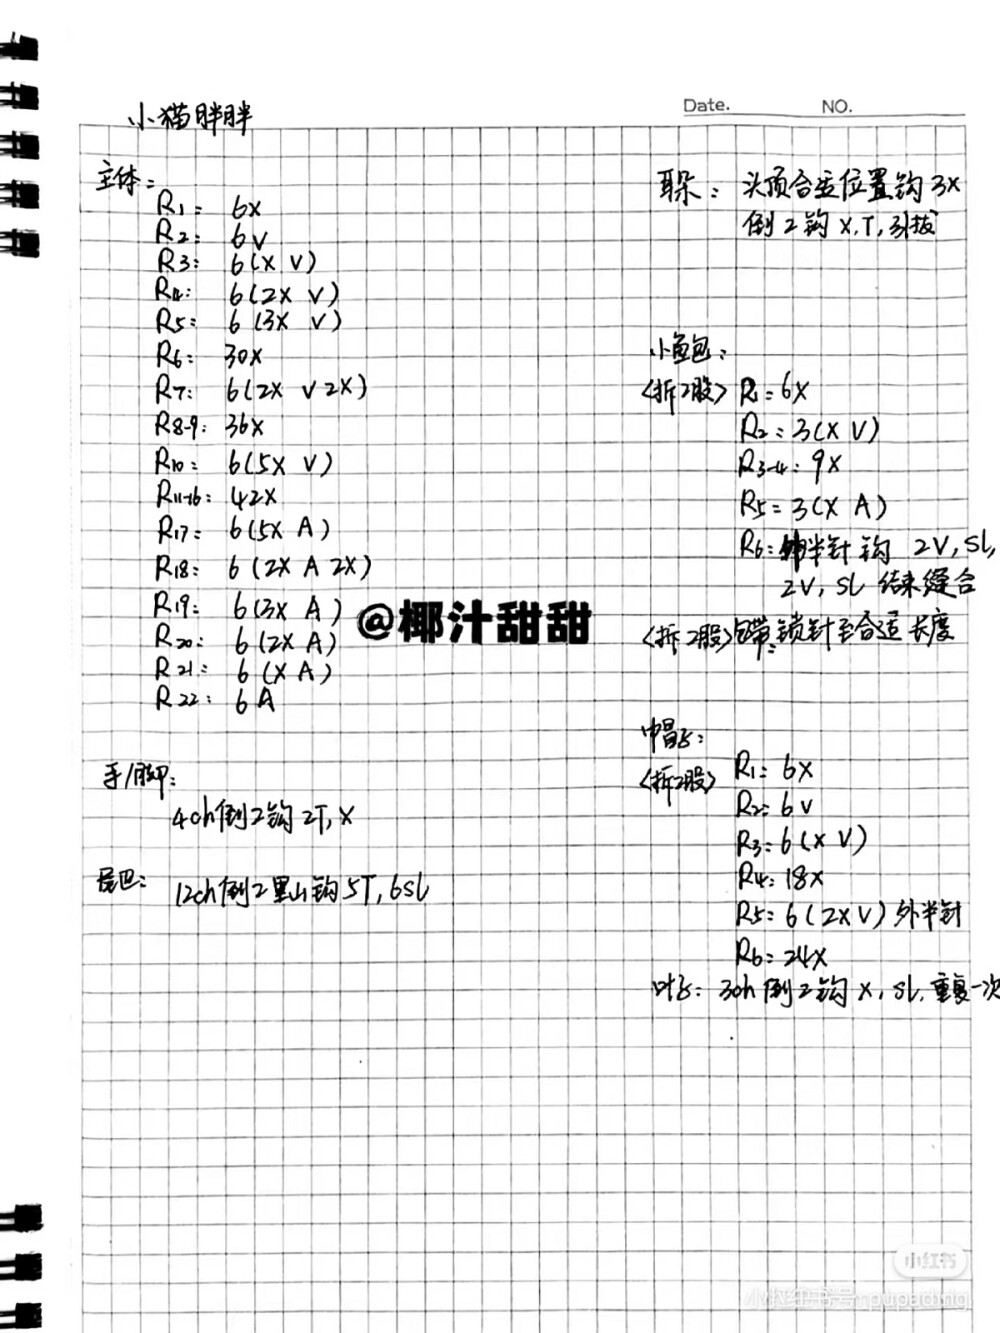 Date.
NO.
小猫胖胖
主体:
R1: 6X
R2: 6V
R3: 6(X V)
R4: 6(2X V)
R5: 6(3X V)
R6: 30X
R7: 6(2X V 2X)
R8-9: 36X
R10: 6(5X V)
R11-16: 42X
R17: 6(5X A)
R18: 6(2X A 2X)
R19: 6(3X A)
R20: 6(2X A)
R21: 6(X A)
R22: 6A
@椰汁甜甜
手/脚:
4ch倒2钩 2T, X
尾巴: 12ch倒2里山钩5T, 6SL
耳朵: 头顶合适位置钩3X
倒2钩X, T, 引拔
小鱼包:
<拆2股> R1: 6X
R2: 3(X V)
R3-4: 9X
R5: 3(X A)
R6: 外半针钩 2V, SL,
2V, SL 结束缝合
<拆2股>包带: 锁针至合适长度
帽子:
<拆2股> R1: 6X
R2: 6V
R3: 6(X V)
R4: 18X
R5: 6(2X V)外半针
R6: 24X
叶子: 3ch倒2钩X, SL, 重复一次
小红书
小红书号:pupading